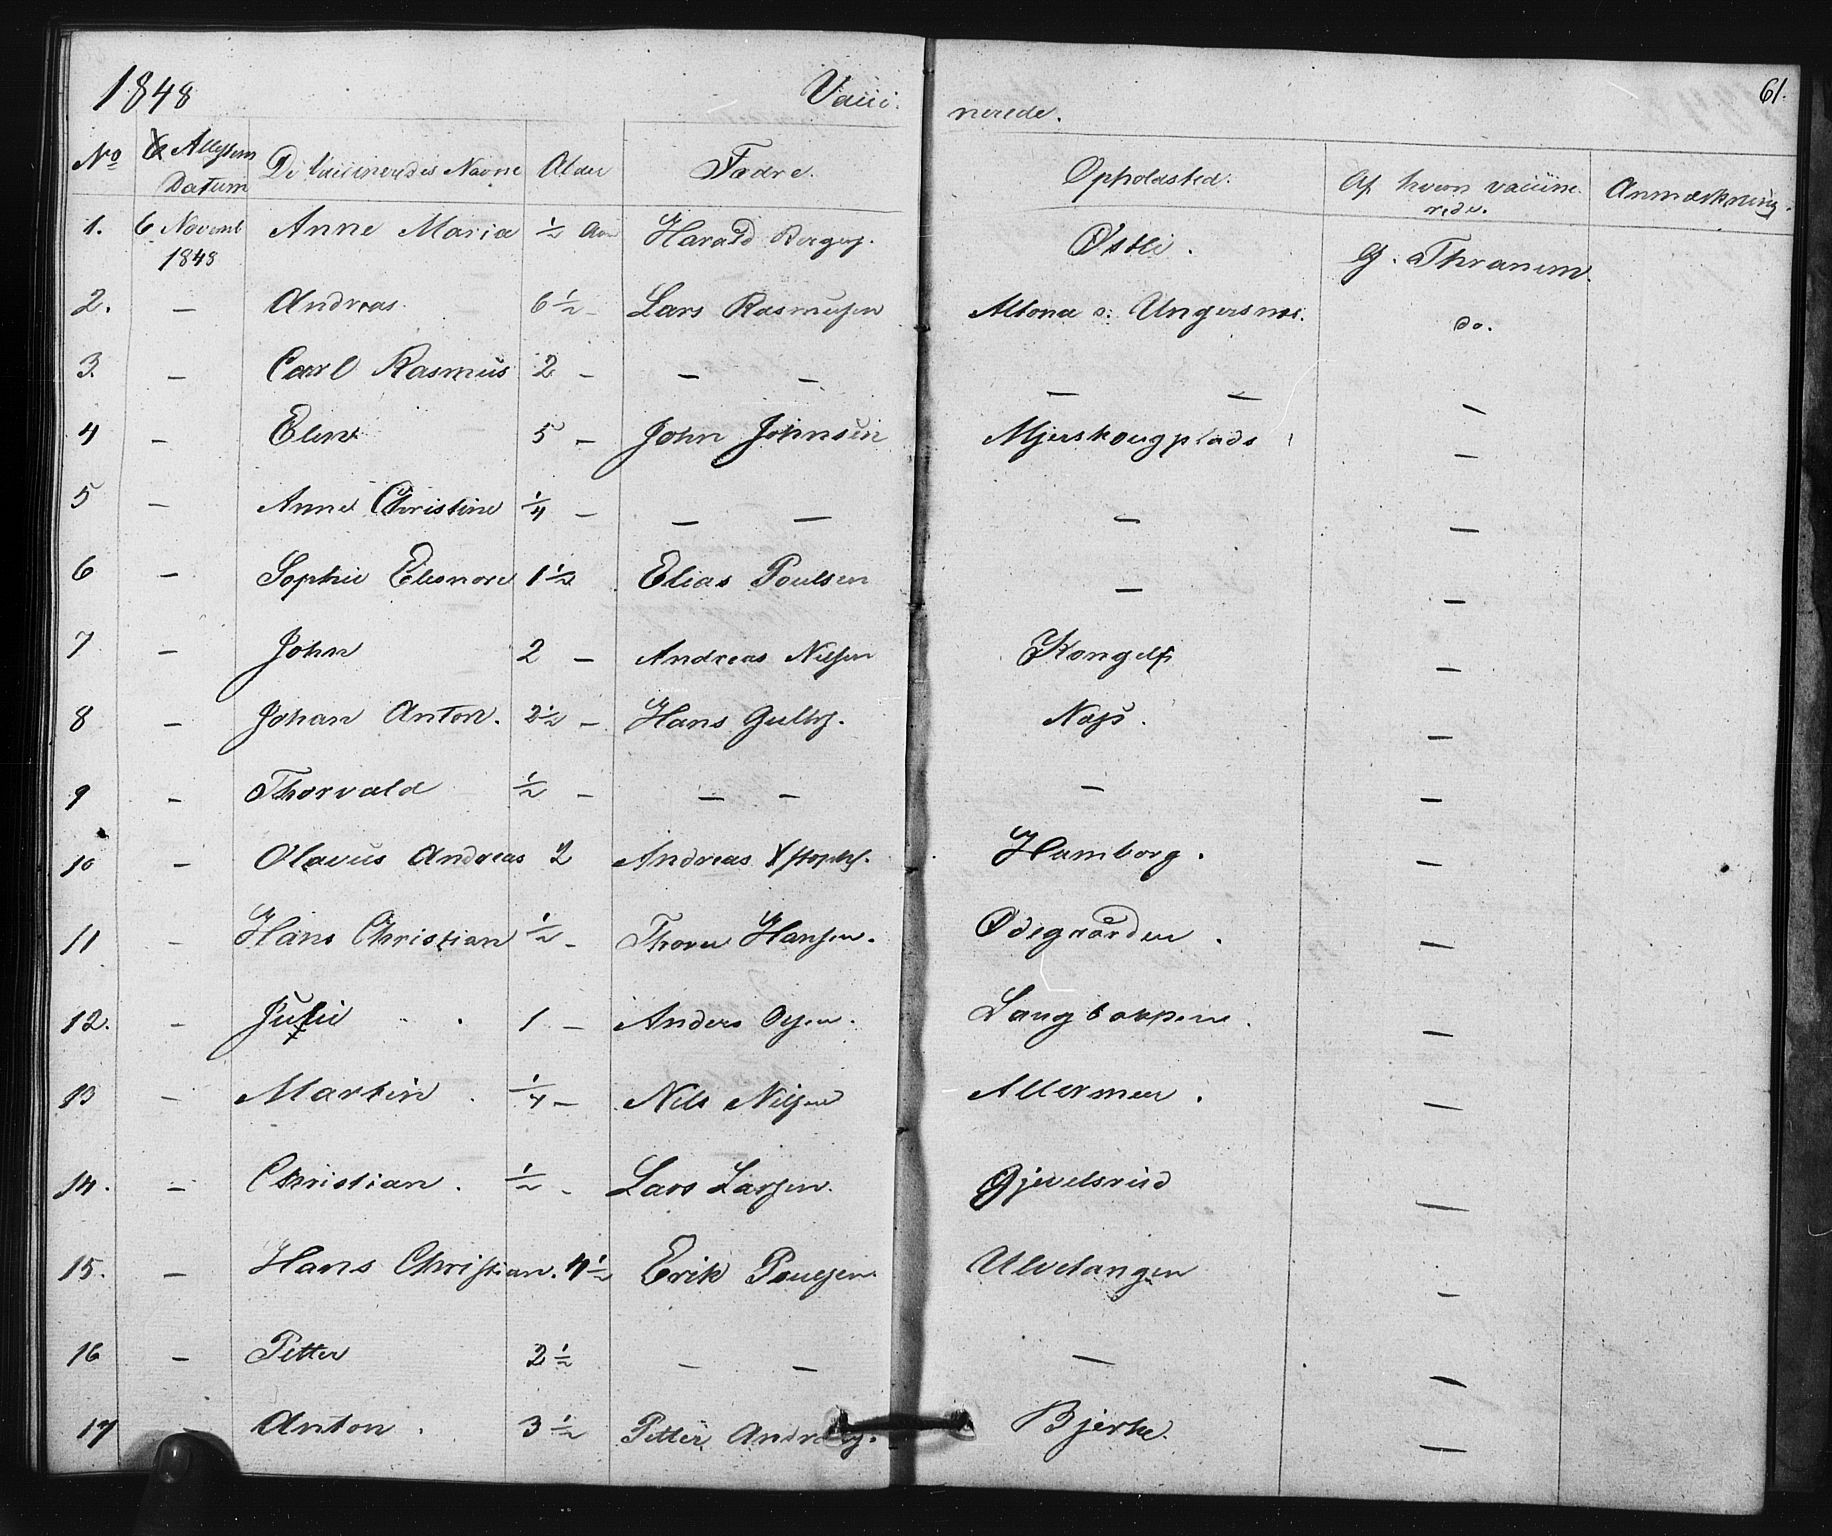 1848 Vacci- nerede. 61.
No Attestens Datum De Vaccineredes Navne Alder Fædre. Opholdssted. Af hvem vaccine- rede. Anmærkning.
1. 6 Novemb 1848 Anne Maria ½ Aar Harald Bergers. Østli. G. Thranem.
2. — Andreas 6½ — Lars Rasmussen Altona do.
3. — Carl Rasmus 2 — — — — — —
4 — Elen 5 — John Johnsen Mjerskougplads —
5 — Anne Christine ¼ — — — — —
6 — Sophie Eleonore 1½ Elias Poulsen — —
7 — John 2 — Andreas Nilsen Kongelf —
8 — Johan Anton. 2½ — Hans Gulbr. Næs. —
9 — Thorvald ½ — — — — —
10 — Olavus Andreas 2 Andreas Xstophs. Hamborg. —
11 — Hans Christian ½ — Thorer Hansen. Ødegaarden. —
12. — Julie 1 — Anders Olsen. Langbakken. —
13 — Martin ¼ — Nils Nilsen —
14. — Christian. ½ — Lars Larsen. Gjevelsrud —
15. — Hans Christian. 4½ Erik Poulsen Ulvetangen —
16 — Petter 2½ — — — —
17 — Anton. 3½ Petter Andreas. Bjerke. —